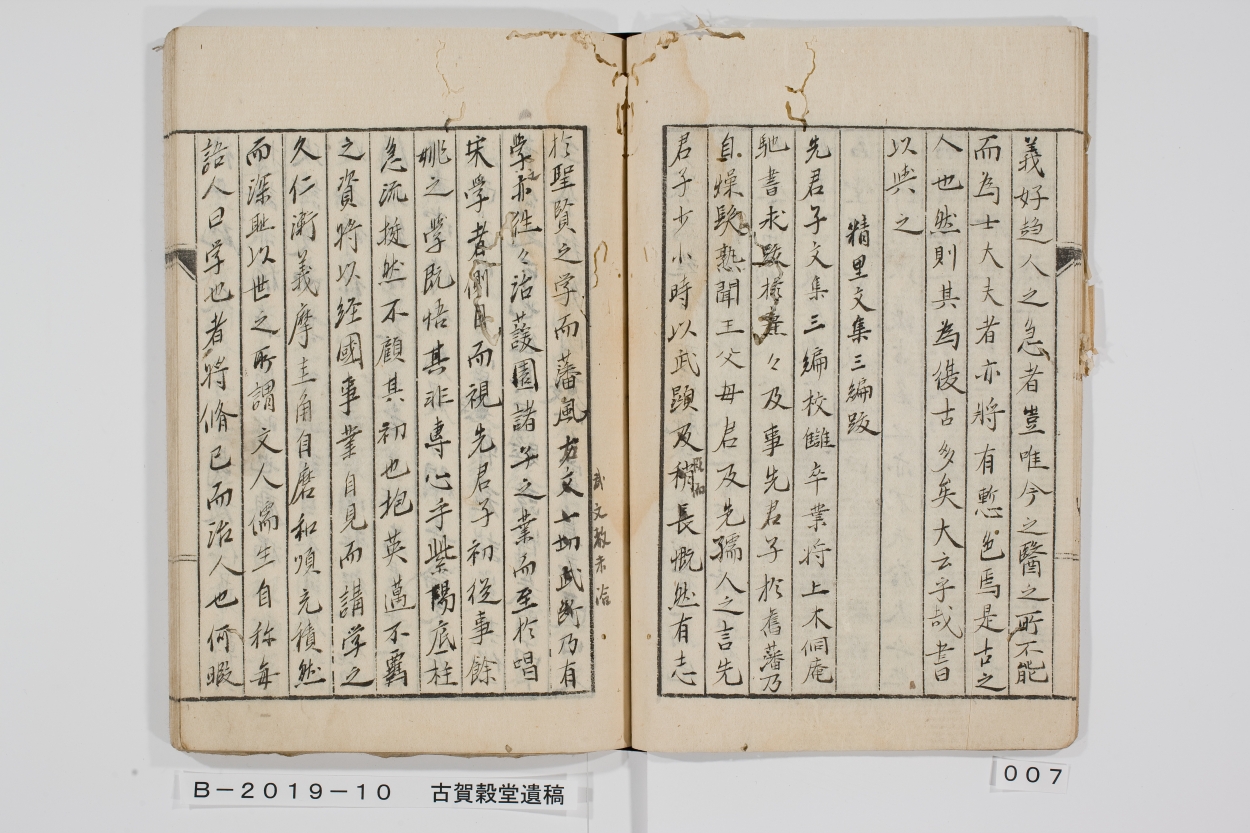 義好趋人之急者豈唯今之醫之所不能
而為士大夫者亦将有慙色焉是古之
人也然則其為復古多矣大云乎哉書
以與之
精里文集三編跋
先君子文集三編校讎卒業将上木侗庵
馳書求跋樸々及事先君子於舊藩乃
息燥髮熟聞王父母君及先孺人之言先
君子少小時以武顕及稍長慨然有志
武文教未洽
於聖賢之学而藩風古文七切武断乃有
学亦往々治蘐園諸子之業而至於唱
宋学者側目而視先君子初従事餘
姚之学既悟其非専心手紫陽底柱
急流挺然不顧其初也抱英邁不羈
之資将以経國事業自見而講学之
久仁漸義摩圭角自磨和順充積然
而深耻以世之所謂文人儒生自称毎
語人曰学也者将脩已而治人也何暇
B－2019－10　古賀穀堂遺稿
007